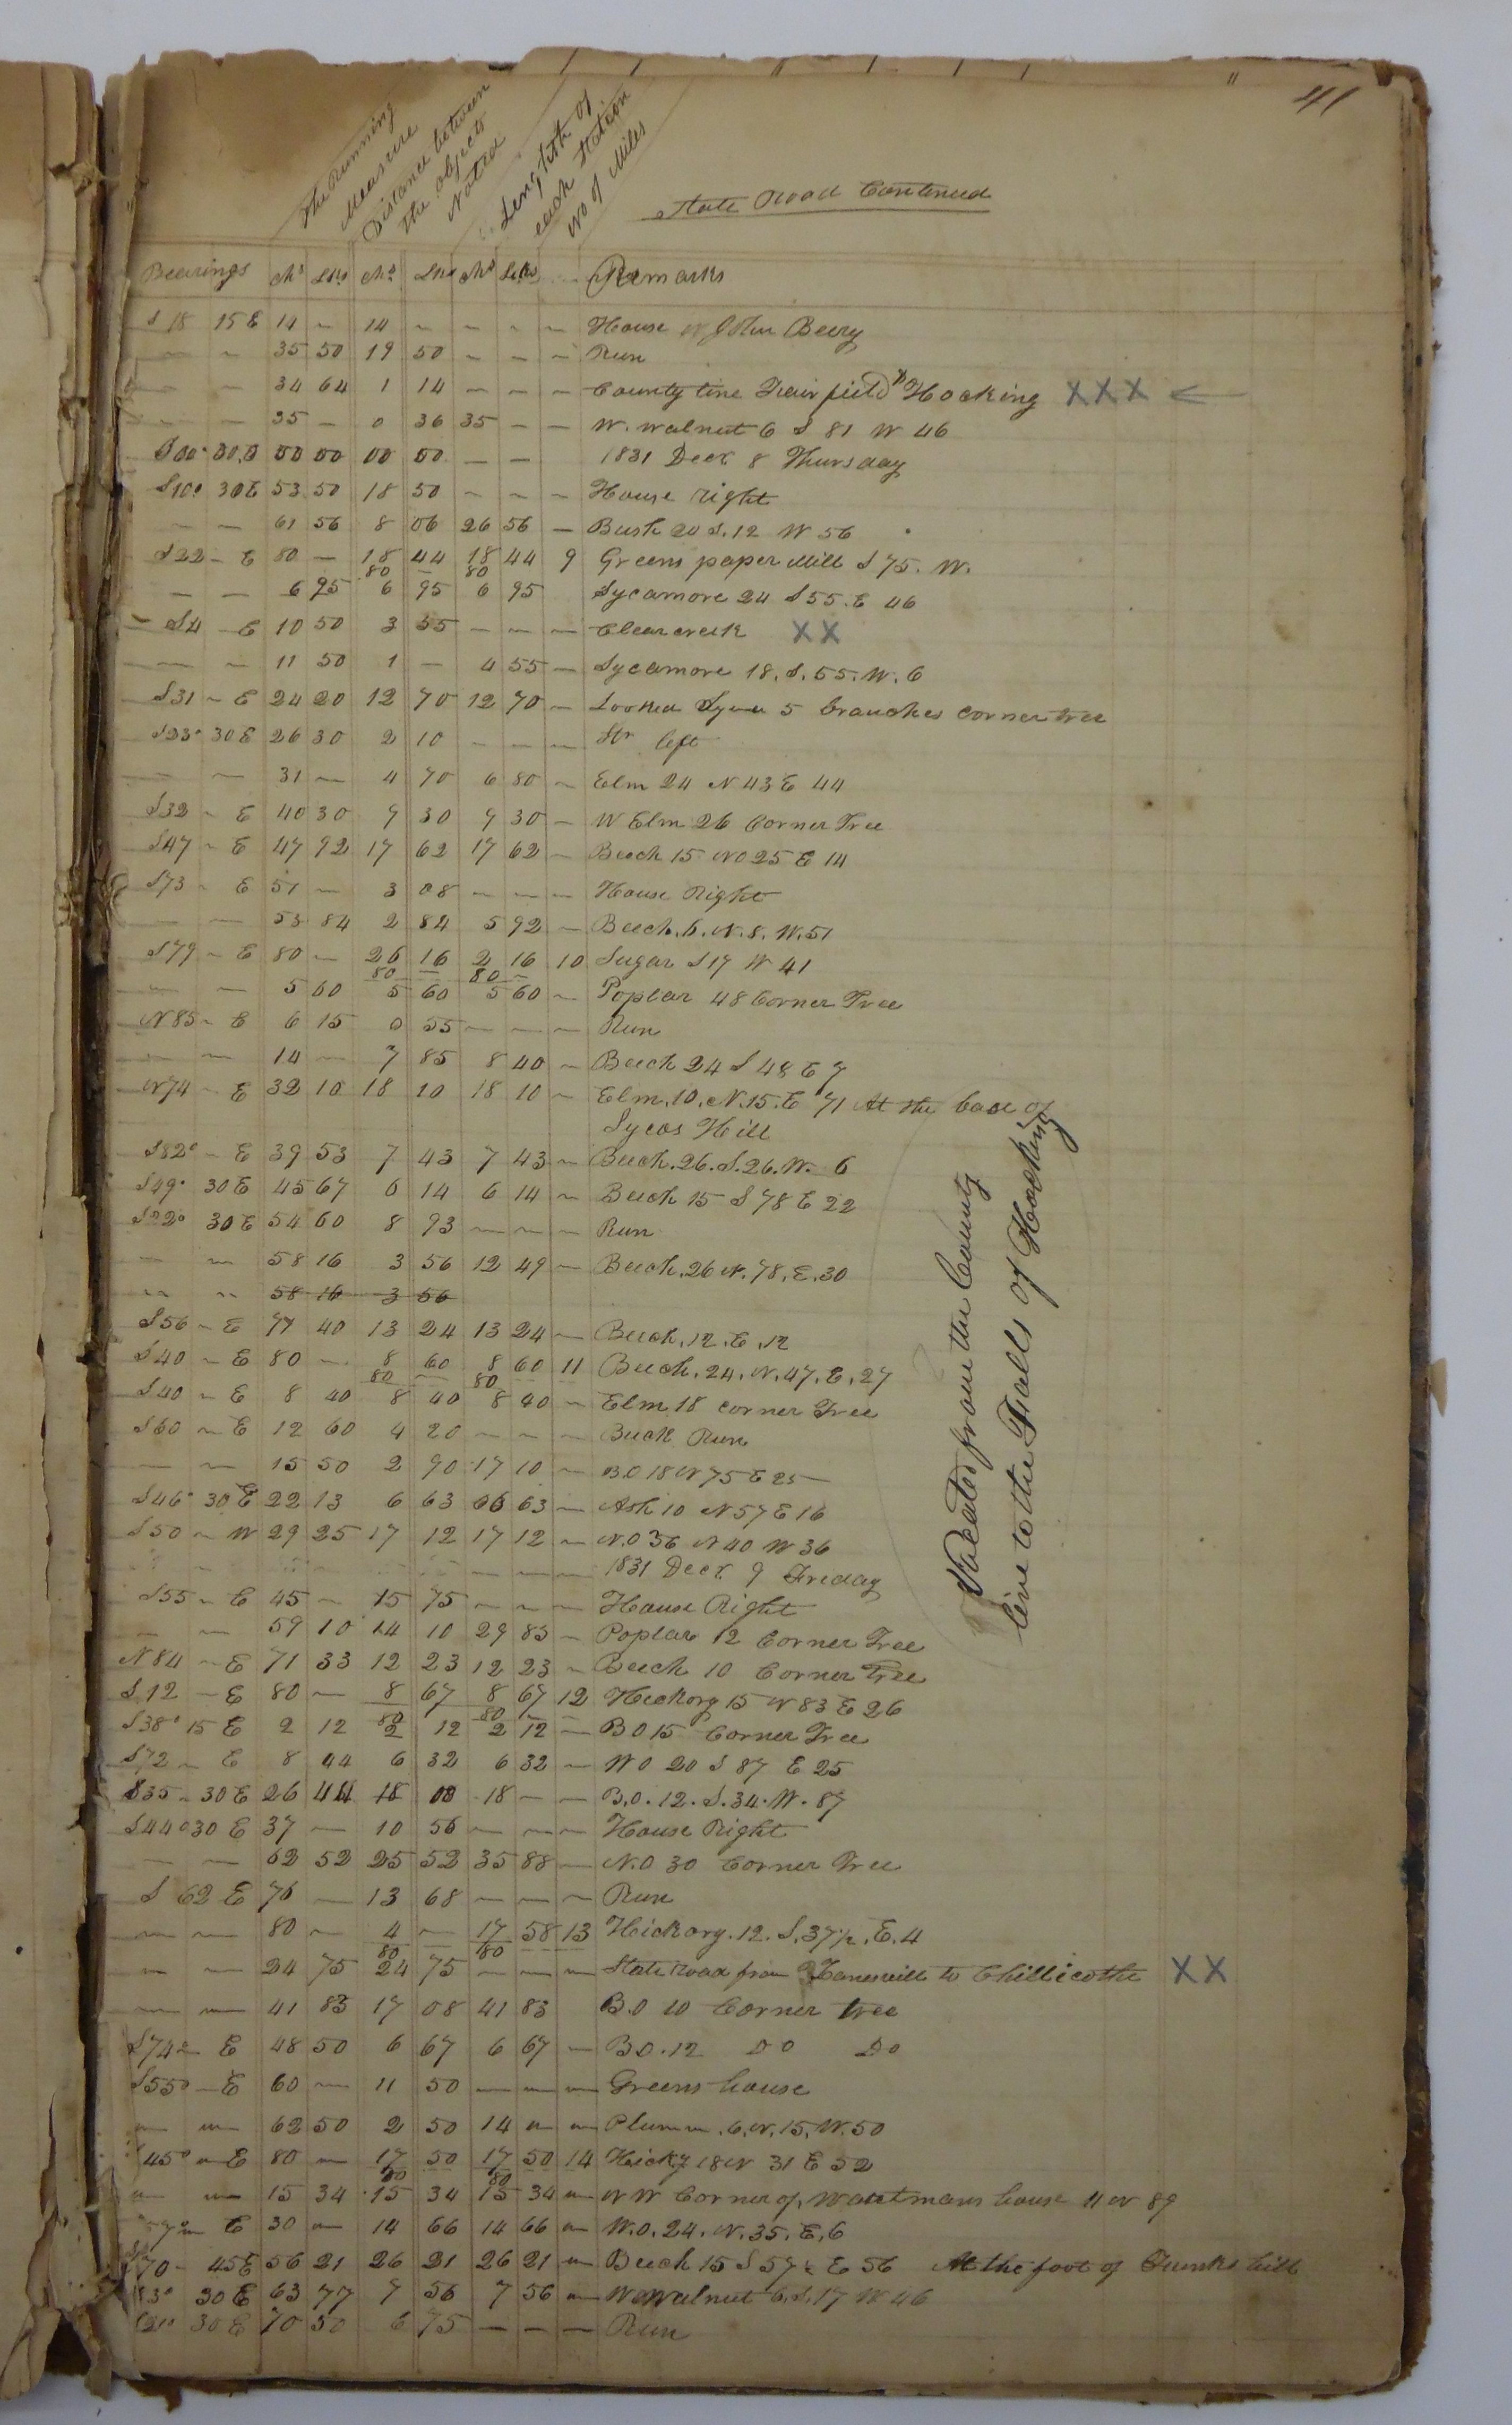 41
The Running
Measure
Distance between
the objects
Noted
Length of
each Station
No of Miles
State Road Continued
Bearings Chs Lks Chs Lks Chs Lks Remarks
S 18 15 E 14 – 14 – – – – House of John Beery
– – 35 50 19 50 – – – Run
– – 34 64 1 14 – – – County line Fairfield & Hocking XXX ←
– – 35 – 0 36 35 – – W. Walnut 6 S 81 W 46
00 00 00 00 — — 1831 Decr 8 Thursday
S10° 30E 53 50 18 50 – – – House right
– – 61 56 8 06 26 56 – 20 S. 12 W 56
S22 – E 80 – 18 44 18 44 9 Greens paper Mill S 75. W.
80 – 80
– – 6 95 6 95 6 95 Sycamore 24 S 55. E 46
S4 – E 10 50 3 55 – – – Clear creek XX
– – 11 50 1 – 4 55 – Sycamore 18. S. 55. W. 6
S31 – E 24 20 12 70 12 70 – 5 branches corner tree
S23° 30E 26 30 2 10 – – – left
– – 31 – 4 70 6 80 – Elm 24 N 43 E 44
S32 – E 40 30 9 30 9 30 – W Elm 26 Corner Tree
S47 – E 47 92 17 62 17 62 – Beech 15 N 25 E 14
S73 – E 51 – 3 08 – – – House Right
– – 53 84 2 84 5 92 – Beech. 6. N. 8. W. 51
S79 – E 80 – 26 16 2 16 10 Sugar S 17 W 41
80 – 80 –
– – 5 60 5 60 5 60 – Poplar 48 Corner Tree
N 85 – E 6 15 0 55 – – – Run
– – 14 – 7 85 8 40 – Beech 24 S 48 E 7
N74 – E 32 10 18 10 18 10 – Elm. 10. N. 15. E 71 At the base of
Hill
S82° – E 39 53 7 43 7 43 – Beech. 26. S. 26. W. 6
S49° 30E 45 67 6 14 6 14 – Beech 15 S 78 E 22
S22° 30E 54 60 8 93 – – – Run
– – 58 16 3 56 12 49 – Beech. 26 N. 78. E. 30
– – 58 16 3 56
S56 – E 71 40 13 24 13 24 – Beech. 12. E. 12
S40 – E 80 – 8 60 8 60 11 Beech. 24. N. 47. E. 27
80 – 80
S40 – E 8 40 8 40 8 40 – Elm 18 corner Tree
S60 – E 12 60 4 20 – – – Buck Run
– – 15 50 2 90 17 10 – B.O 18 N 75 E 25
S46° 30E 22 13 6 63 06 63 – Ash 10 N 57 E 16
S50 – W 29 25 17 12 17 12 – N.O 36 N 40 W 36
1831 Decr 9 Friday
S55 – E 45 – 15 75 – – – House Right
– – 59 10 14 10 29 85 – Poplar 12 Corner Tree
N 84 – E 71 33 12 23 12 23 – Beech 10 Corner Tree
S 12 – E 80 – 8 67 8 67 12 Hickory 15 N 83 E 26
80 80
S38° 15 E 2 12 2 12 2 12 – B O 15 Corner Tree
S72 – E 8 44 6 32 6 32 – W O 20 S 87 E 25
S35 – 30E 26 44 18 00 18 – – B.O. 12. S. 34. W. 87
S44° 30 E 37 – 10 56 – – – House Right
– – 62 52 25 52 35 88 – N.O 30 Corner Tree
S 62 E 76 – 13 68 – – – Run
– – 80 – 4 – 17 58 13 Hickory. 12. S. 37½. E. 4
80 80
– – 24 75 24 75 – – – State road from Zanesville to Chillicothe XX
– – 41 83 17 08 41 83 B.O 10 Corner tree
S74° – E 48 50 6 67 6 67 – B.O. 12 Do Do
S55° – E 60 – 11 50 – – – Greens house
– – 62 50 2 50 14 – – Plumm. 6. N. 15. W. 50
45° – E 80 – 17 50 17 50 14 Hicky 18 N 31 E 52
80 80
– – 15 34 15 34 15 34 – N W Corner of house 11 N 89
E 30 – 14 66 14 66 – W.O. 24. N. 35. E. 6
S70 – 45E 56 21 26 21 26 21 – Beech 15 S 57½ E 56 At the foot of Funks hill
3° 30 E 63 77 7 56 7 56 – W Walnut 6. S. 17 W 46
30 E 70 50 6 75 – – – Run
Vacated from the County
line to the Falls of Hocking